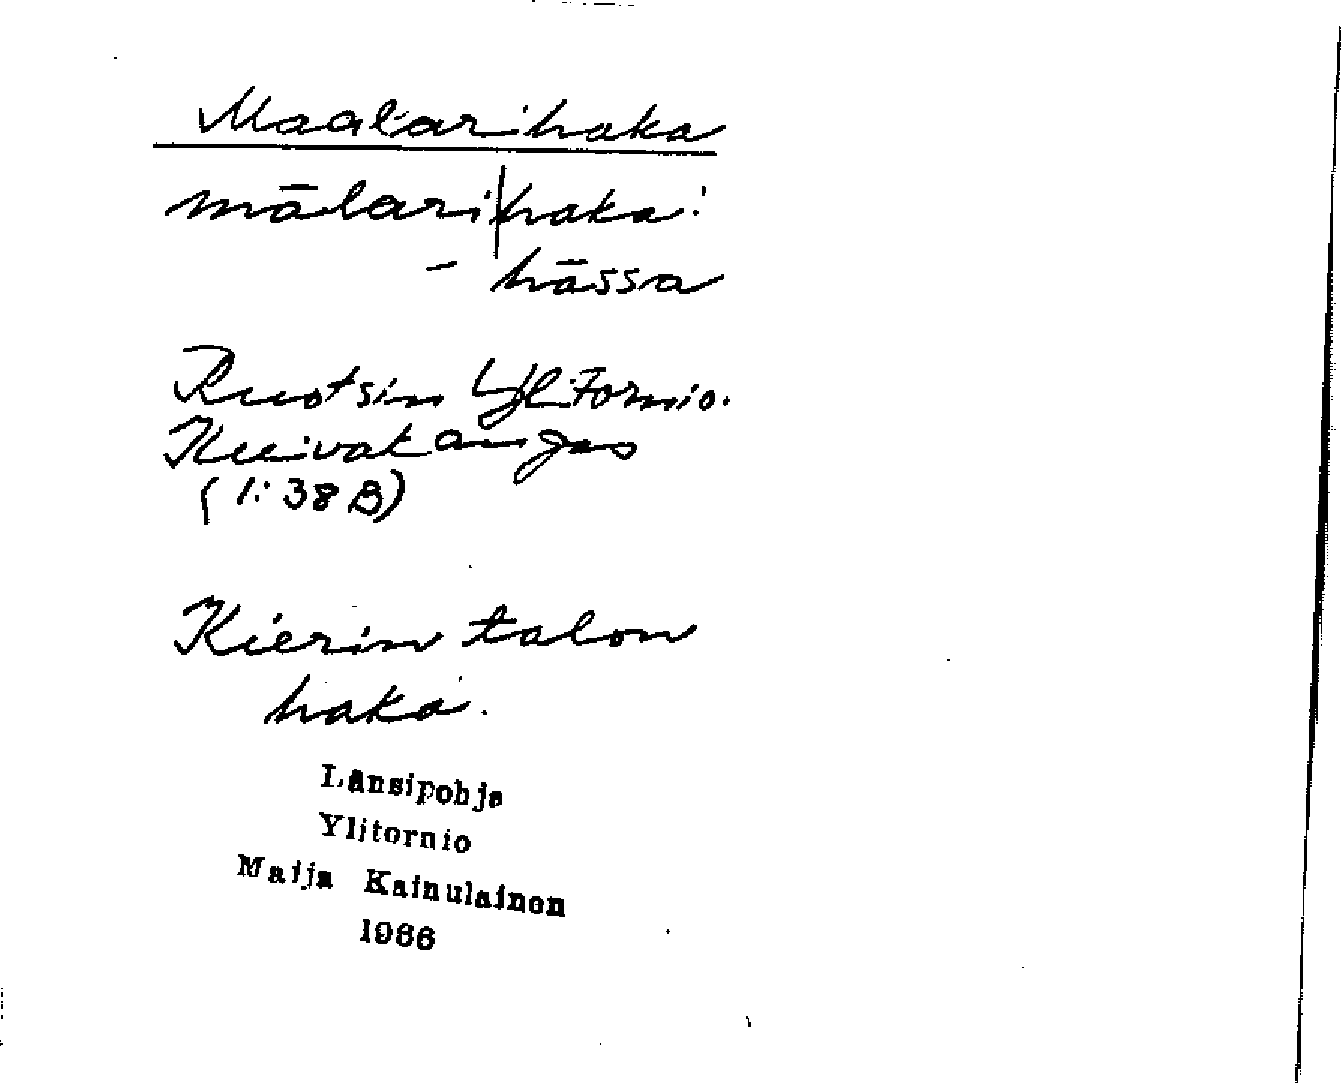 Maalarihaka
mālari|haka:
– hāssa
Ruotsin Ylitornio.
Kuivakangas
(1:38 B)
Kierin talon
haka.
Länsipohja
Ylitornio
Maija Kainulainen
1966